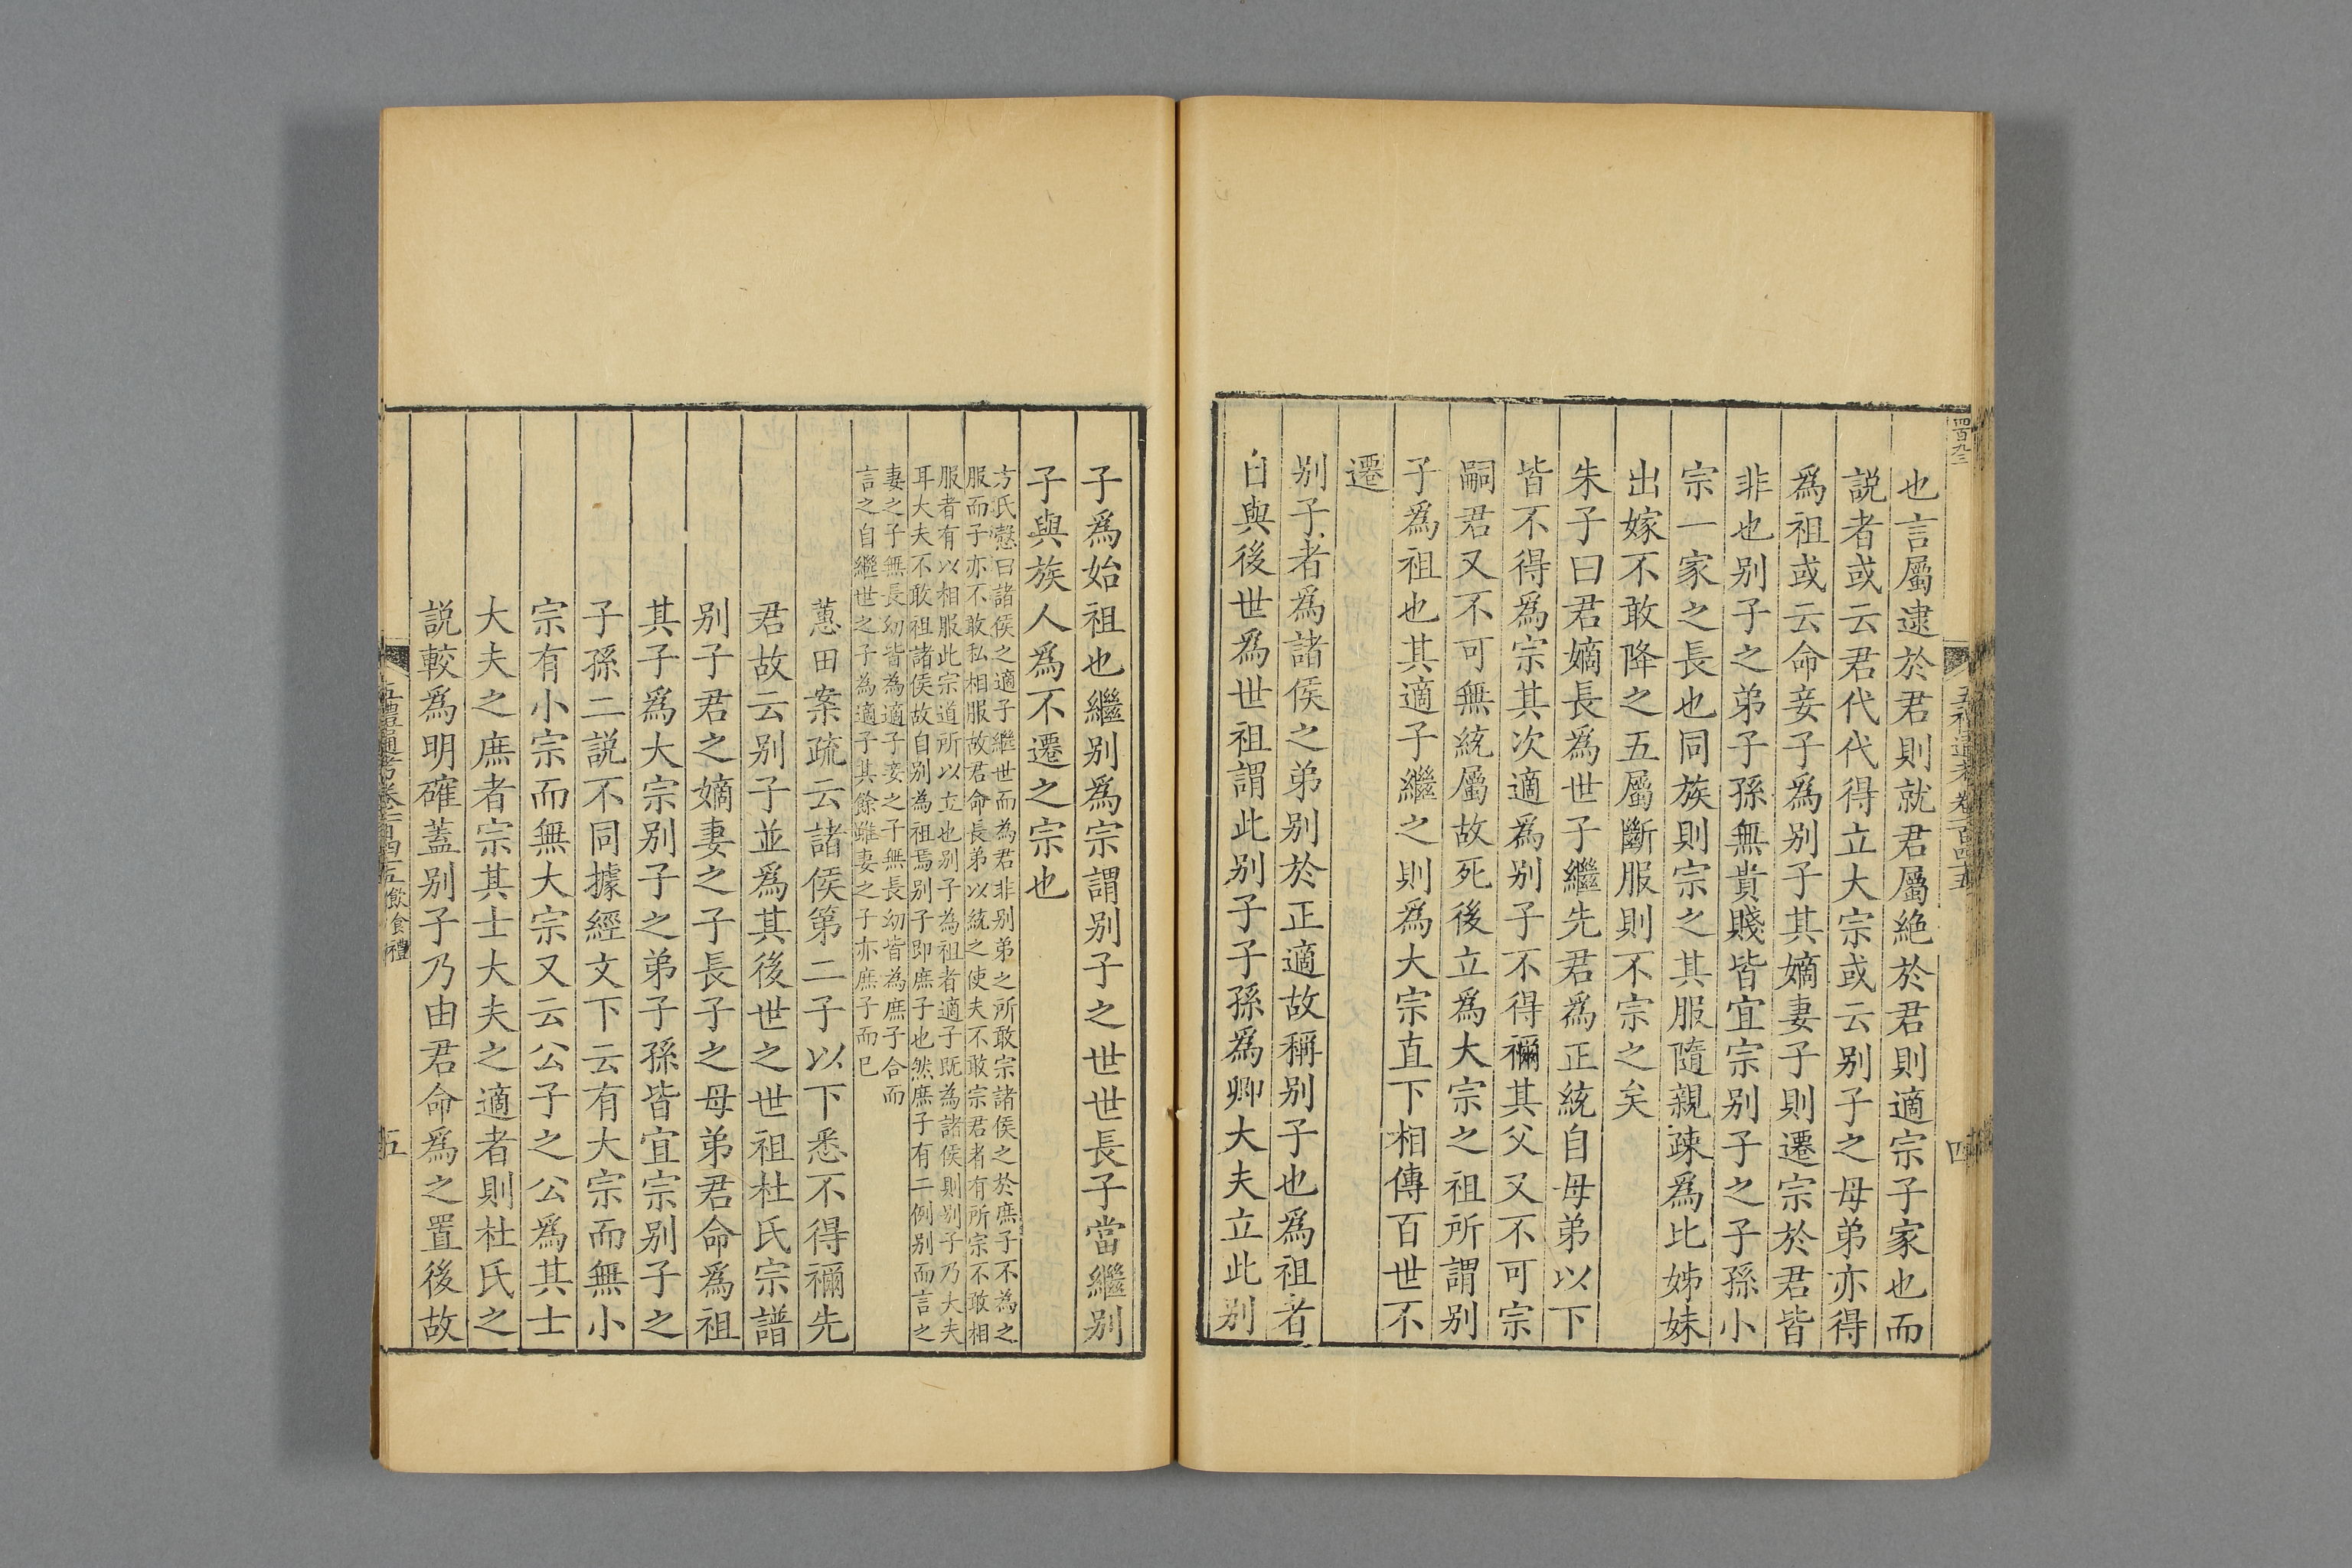 四百九三
五禮通考 卷一百四五
四
也言屬逮於君則就君屬絶於君則適宗子家也而
説者或云君代代得立大宗或云别子之母弟亦得
爲祖或云命妾子爲别子其嫡妻子則遷宗於君皆
非也别子之弟子孫無貴賤皆宜宗别子之子孫小
宗一家之長也同族則宗之其服隨親疎爲比姊妹
出嫁不敢降之五屬斷服則不宗之矣
朱子曰君嫡長爲世子繼先君爲正統自母弟以下
皆不得爲宗其次適爲别子不得禰其父又不可宗
嗣君又不可無統屬故死後立爲大宗之祖所謂别
子爲祖也其適子繼之則爲大宗直下相傳百世不
遷
别子者爲諸侯之弟别於正適故稱别子也爲祖者
自與後世爲世祖謂此别子子孫爲卿大夫立此别
子爲始祖也繼别爲宗謂别子之世世長子當繼别
子與族人爲不遷之宗也
方氏慤曰諸侯之適子繼世而為君非别弟之所敢宗諸侯之於庶子不為之
服而子亦不敢私相服故君命長弟以統之使夫不敢宗君者有所宗不敢相
服者有以相服此宗道所以立也别子為祖者適子既為諸侯則别子乃大夫
耳大夫不敢祖諸侯故自别為祖焉别子即庶子也然庶子有二例别而言之
妻之子無長幼皆為適子妾之子無長幼皆為庶子合而
言之自繼世之子為適子其餘雖妻之子亦庶子而已
蕙田案疏云諸侯第二子以下悉不得禰先
君故云别子並爲其後世之世祖杜氏宗譜
别子君之嫡妻之子長子之母弟君命爲祖
其子爲大宗别子之弟子孫皆宜宗别子之
子孫二説不同據經文下云有大宗而無小
宗有小宗而無大宗又云公子之公爲其士
大夫之庶者宗其士大夫之適者則杜氏之
説較爲明確蓋别子乃由君命爲之置後故
五禮通考卷一百四五 飲食禮
五